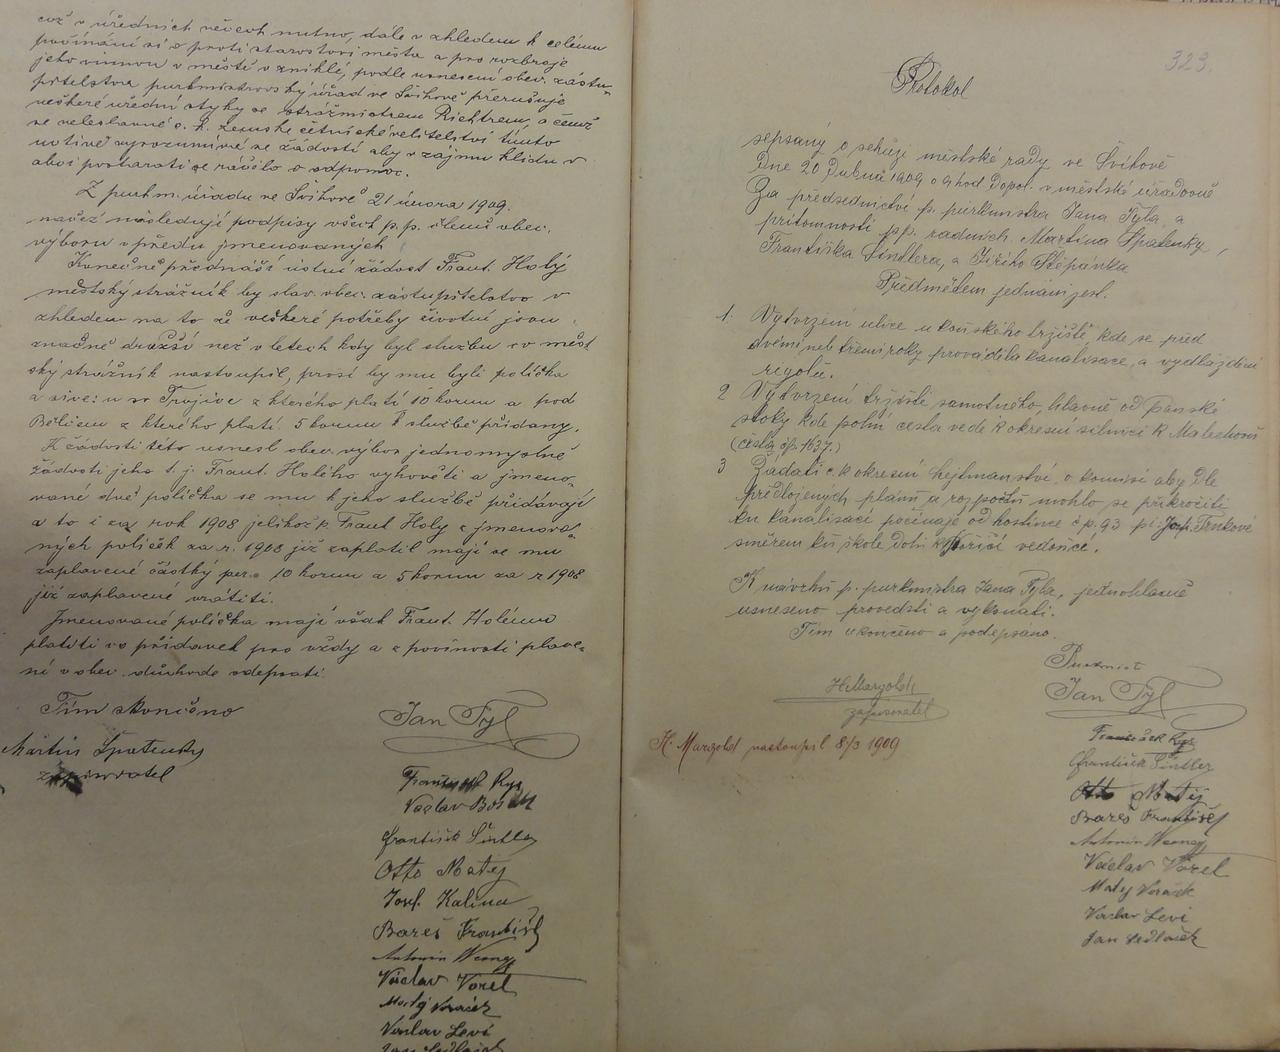 což v úředních věcech nutno, dále v zhledem k celému
počínání si o proti starostovi města a pro rozbroje
jeho vinnou v městě vzniklé, podle usnesení obec. zástu-
pitelstva purkmistrovský úřad ve Švihově přerušuje
veškeré úřední styky se strážmistrem Richtrem, o čemž
se veleslavné c. k. zemské četnické velitelství tímto
uctivě vyrozumívá se žádostí aby v zájmu klidu v
obci postarati se ráčilo o odpomoc.
Z purkm. úřadu ve Švihově 21 února 1909.
načež následují podpisy všech p.p. členů obec.
výboru v předu jmenovaných
Konečně přednáší ústní žádost Frant. Holý
městský strážník by slav. obec. zastupitelstvo v
zhledem na to že veškeré potřeby životní jsou
značně dražší než v letech kdy byl službu co měst
ský strážník nastoupil, prosí by mu byli políčka
a sice: u sv Trojice z kterého platí 10 korun a pod
Běličem z kterého platí 5 korun k službě přidány.
K žádosti této usnesl obec. výbor jednomyslně
žádosti jeho t. j. Frant. Holího vyhověti a jmeno-
vané dvě políčka se mu k jeho službě přidávají
a to i za rok 1908 jelikož p. Frant Holý z jmenova-
ných políček za r. 1908 již zaplatil mají se mu
zaplacené částky per. 10 korun a 5 korun za r 1908
již zaplacené vrátiti.
Jmenované políčka mají však Frant. Holému
platiti co přídavek pro vždy a z povinnosti place-
ní v obec. důchodě odepsati.
Tím skončeno
Jan Tyl
Martin Špatenky
zapisovatel
František Rys
Vaclav
František Šindler
Otto Matěj
Josef. Kalina
Bareš František
Antonín
Václav Vorel
Matěj Voráček
Vaclav Levi
Jan Sedláček
323.
Protokol
sepsaný o schůzi městské rady ve Švihově
Dne 20 Dubna 1909 o 9 hod Dopol. v městské úřadovně
Za předsednictví p. purkmistra Jana Tyla, a
přítomnosti p.p. radních. Martina Špatenky,
Františka Šindlera, a Jiřího Štěpánka
Předmětem jednání jest.
1. Vytvrzení ulice u koňského tržiště, kde se před
dvěmi neb třemi roky prováděla kanalisace, a vydláždění
regolu.
2 Vytvrzení tržiště samotného, hlavně od Panské
stoky kde polní cesta vede k okresní silnici k Malechovů
(cesta čp. 1637.)
3 Žádati c. k okresní hejtmanství, o komisi aby dle
předložených plánů a rozpočtů mohlo se přikročiti
ku kanalisaci počínaje od hostince č p. 93 pí: Jos. Trnkové
směrem ku škole dolů k Poříčí vedoucí.
K návrhu p. purkmistra Jana Tyla, jednohlasně
usneseno provésti a vykonati.
Tím ukončeno a podepsáno.
Purkmist
Jan Tyl
H Margold
zapisovatel
H. Margold nastoupil 8/3 1909
František Rys
František Šindler
Otto Matěj
Bareš František
Antonín
Václav Vorel
Matěj Voráček
Vaclav Levi
Jan Sedláček